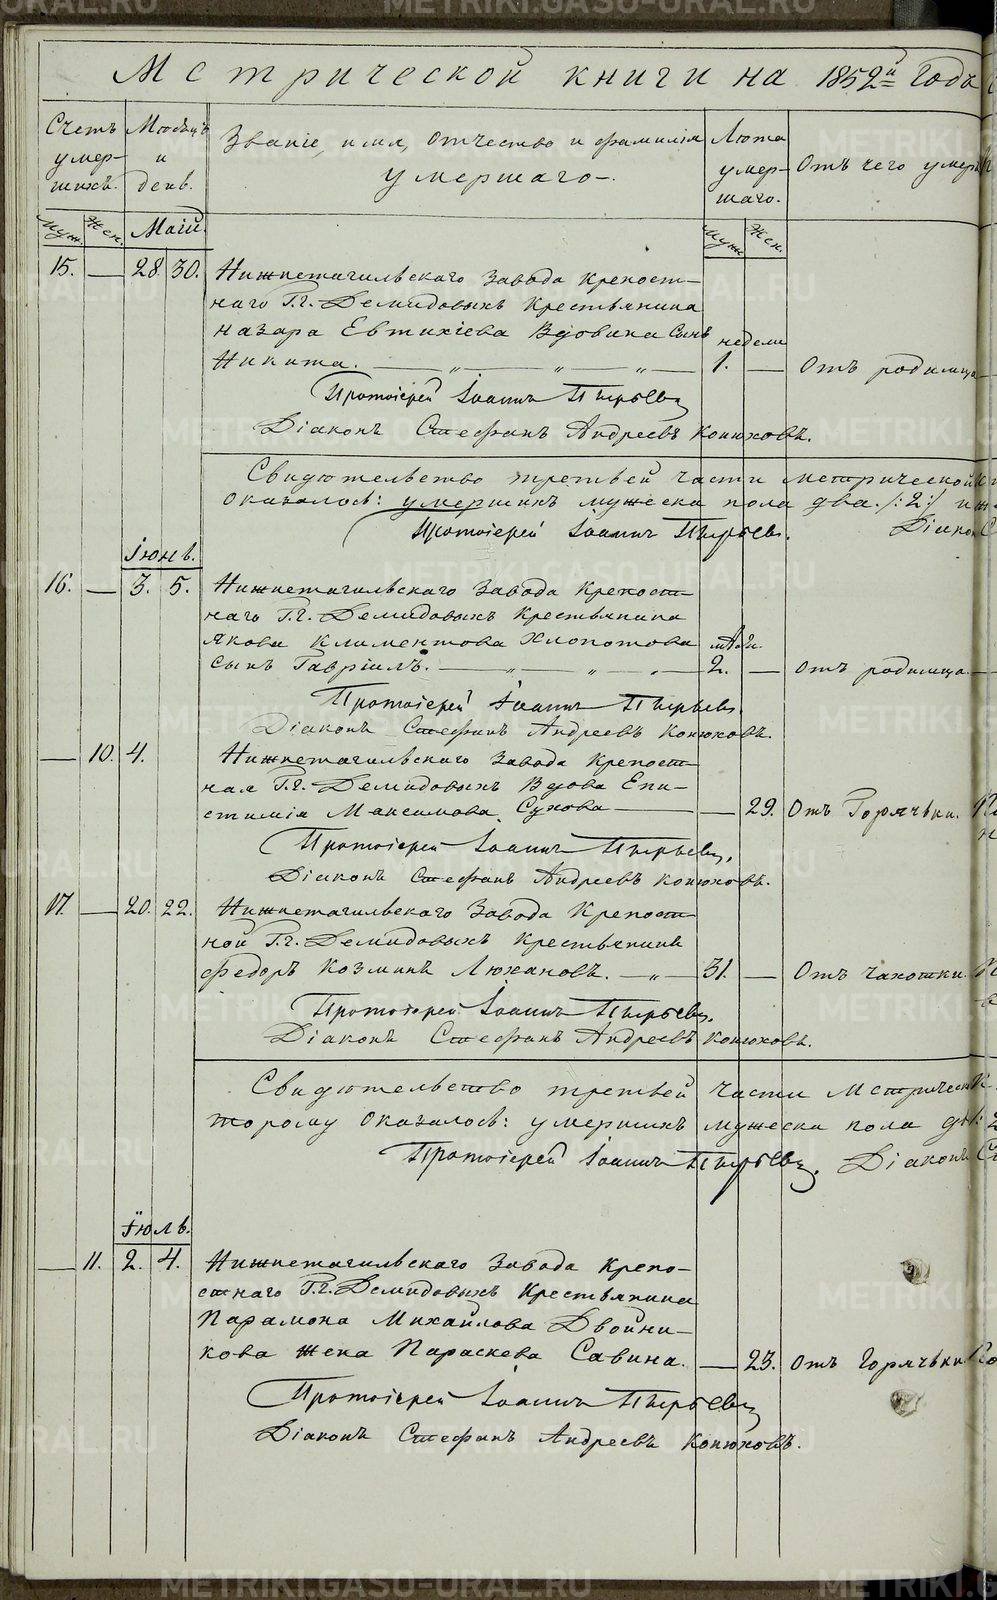 Метрической книги на 1852й годъ
Счетъ умер-шихъ.
Мѣсяцъ и день.
Званіе, имя, отчество и фамилія умершаго.
Лѣта умер-шаго.
Отъ чего умеръ
Муж. Жен. Маій. Муж. Жен.
15. — 28 30. Нижнетагильскаго завода крепост-
наго Г.г. Демидовыхъ крестьянина
Назара Евтихіева Вдовина сынъ недели
Никита. — „ — „ — „ — 1. — Отъ родимца
Протоіерей Іоаннъ Пырьевъ
Діаконъ Стефанъ Андреевъ Конюховъ.
Свидѣтельство третьей части метрической
оказалось: умершихъ мужеска пола два /:2:/ и
Протоіерей Іоаннъ Пырьевъ. Діаконъ
Іюнь.
16. — 3. 5. Нижнетагильскаго завода крепост-
наго Г.г. Демидовыхъ крестьянина
Якова Климентова Хлопотова мѣс.
сынъ Гавріилъ. — „ — „ — „ — 2. — Отъ родимца.
Протоіерей Іоаннъ Пырьевъ.
Діаконъ Стефанъ Андреевъ Конюховъ.
— 10. 4. Нижнетагильскаго завода крепост-
ная Г.г. Демидовыхъ вдова Епи-
стимія Максимова Сухова — — 29. Отъ горячьки.
Протоіерей Іоаннъ Пырьевъ.
Діаконъ Стефанъ Андреевъ Конюховъ.
17. — 20. 22. Нижнетагильскаго завода крепост-
ной Г.г. Демидовыхъ крестьянинъ
Федоръ Козминъ Ляхановъ. — „ — 31. — Отъ чахотки.
Протоіерей Іоаннъ Пырьевъ.
Діаконъ Стефанъ Андреевъ Конюховъ.
Свидѣтельство третьей части метрической
торому оказалось: умершихъ мужеска пола
Протоіерей Іоаннъ Пырьевъ. Діаконъ
Іюль.
— 11. 2. 4. Нижнетагильскаго завода крепо-
стнаго Г.г. Демидовыхъ крестьянина
Парамона Михайлова Двойни-
кова жена Параскева Савина. — 23. Отъ горячьки
Протоіерей Іоаннъ Пырьевъ
Діаконъ Стефанъ Андреевъ Конюховъ.
METRIKI.GASO-URAL.RU